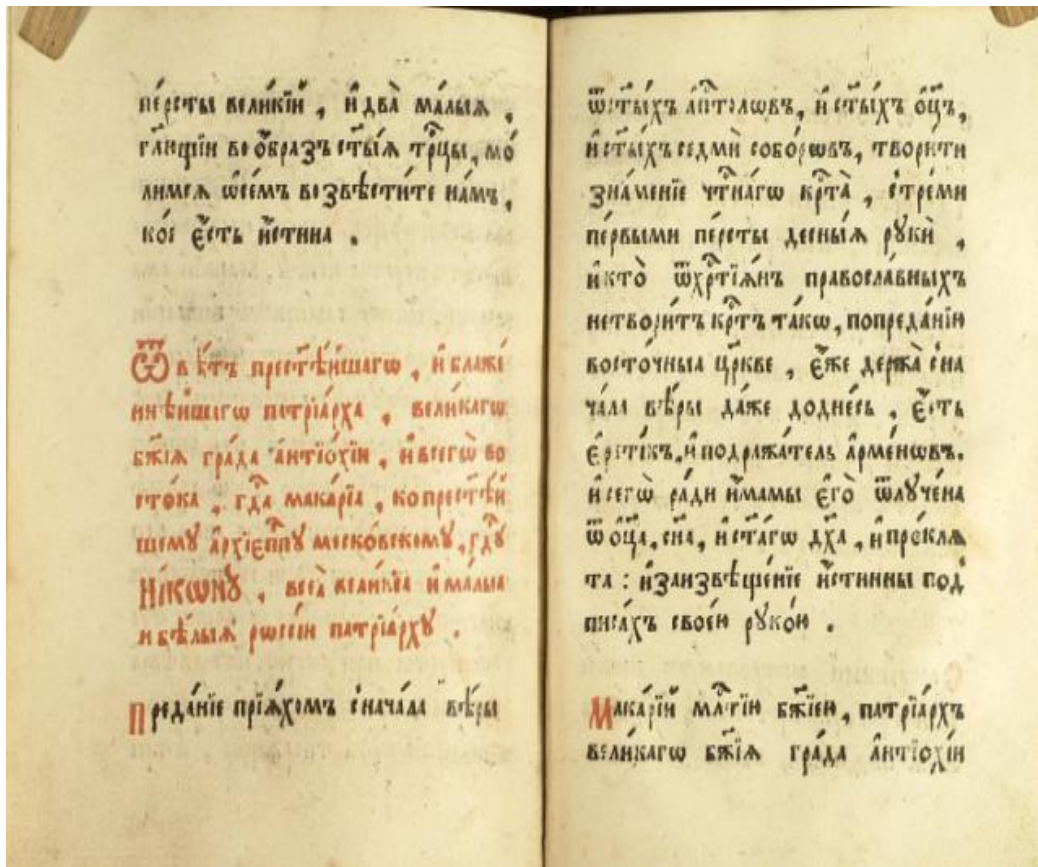 пе́рсты вели́кїи , и҆два̀ ма̑лыѧ ,
гл҃ющїи во ѻ҆́бразъ ст҃ы́ѧ трⷪ҇цы, мо́
лимсѧ ѡ҆се́мъ возвѣсти́те на́мъ,
ко́е є҆́сть и҆́стина .
Ѿвѣ́тъ прест҃ѣ́йшагѡ , и҆ блаже́
ннѣ́йшагѡ патрїа́рха , вели́кагѡ
бж҃їѧ гра́да а҆нтїохі́и , и҆всегѡ̀ во
сто́ка , гдⷭ҇а мака́рїа , копрест҃ѣ́й
шему а҆рхїє҆пⷭ҇кпꙋ моско́вскомꙋ, гдⷭ҇ꙋ
Ни́кѡнꙋ , всеѧ̀ вели́кїѧ и҆ ма́лыѧ
и҆ бѣ́лыѧ рѡссі́и патрїа́рхꙋ .
Преда́нїе прїѧ́хомъ снача́ла вѣ́ры
ѿст҃ы́хъ а҆пⷭ҇толѡвъ, и҆ ст҃ы́хъ ѻ҆ц҃ъ,
и҆ ст҃ы́хъ седмѝ собо́рѡвъ, твори́ти
зна́менїе чтⷭ҇на́гѡ крⷭ҇та̀ , стреми̑
пе́рвыми пе́рсты десны́ѧ рꙋкѝ ,
и҆кто̀ ѿхрⷭ҇тїѧ́нъ правосла́вныхъ
нетвори́тъ крⷭ҇тъ та́кѡ, попреда́нїю
восто́чныѧ цр҃кве , є҆́же держа̀ сна
ча́ла вѣ́ры да́же додне́сь , є҆́сть
є҆рети́къ, и҆ подража́тель а҆рме́нѡвъ.
и҆ сегѡ̀ ра́ди и҆́мамы є҆го̀ ѿлꙋче́на
ѿ ѻ҆ц҃а, сн҃а, и҆ ст҃а́гѡ дх҃а , и҆ про́клѧ
та : и҆заи҆звѣще́нїе и҆́стинны под
писа́хъ свое́ю рꙋко́ю .
Мака́рїй млⷭ҇тїю бж҃їею, патрїа́рхъ
вели́кагѡ бж҃їѧ гра́да а҆нтїохі́и